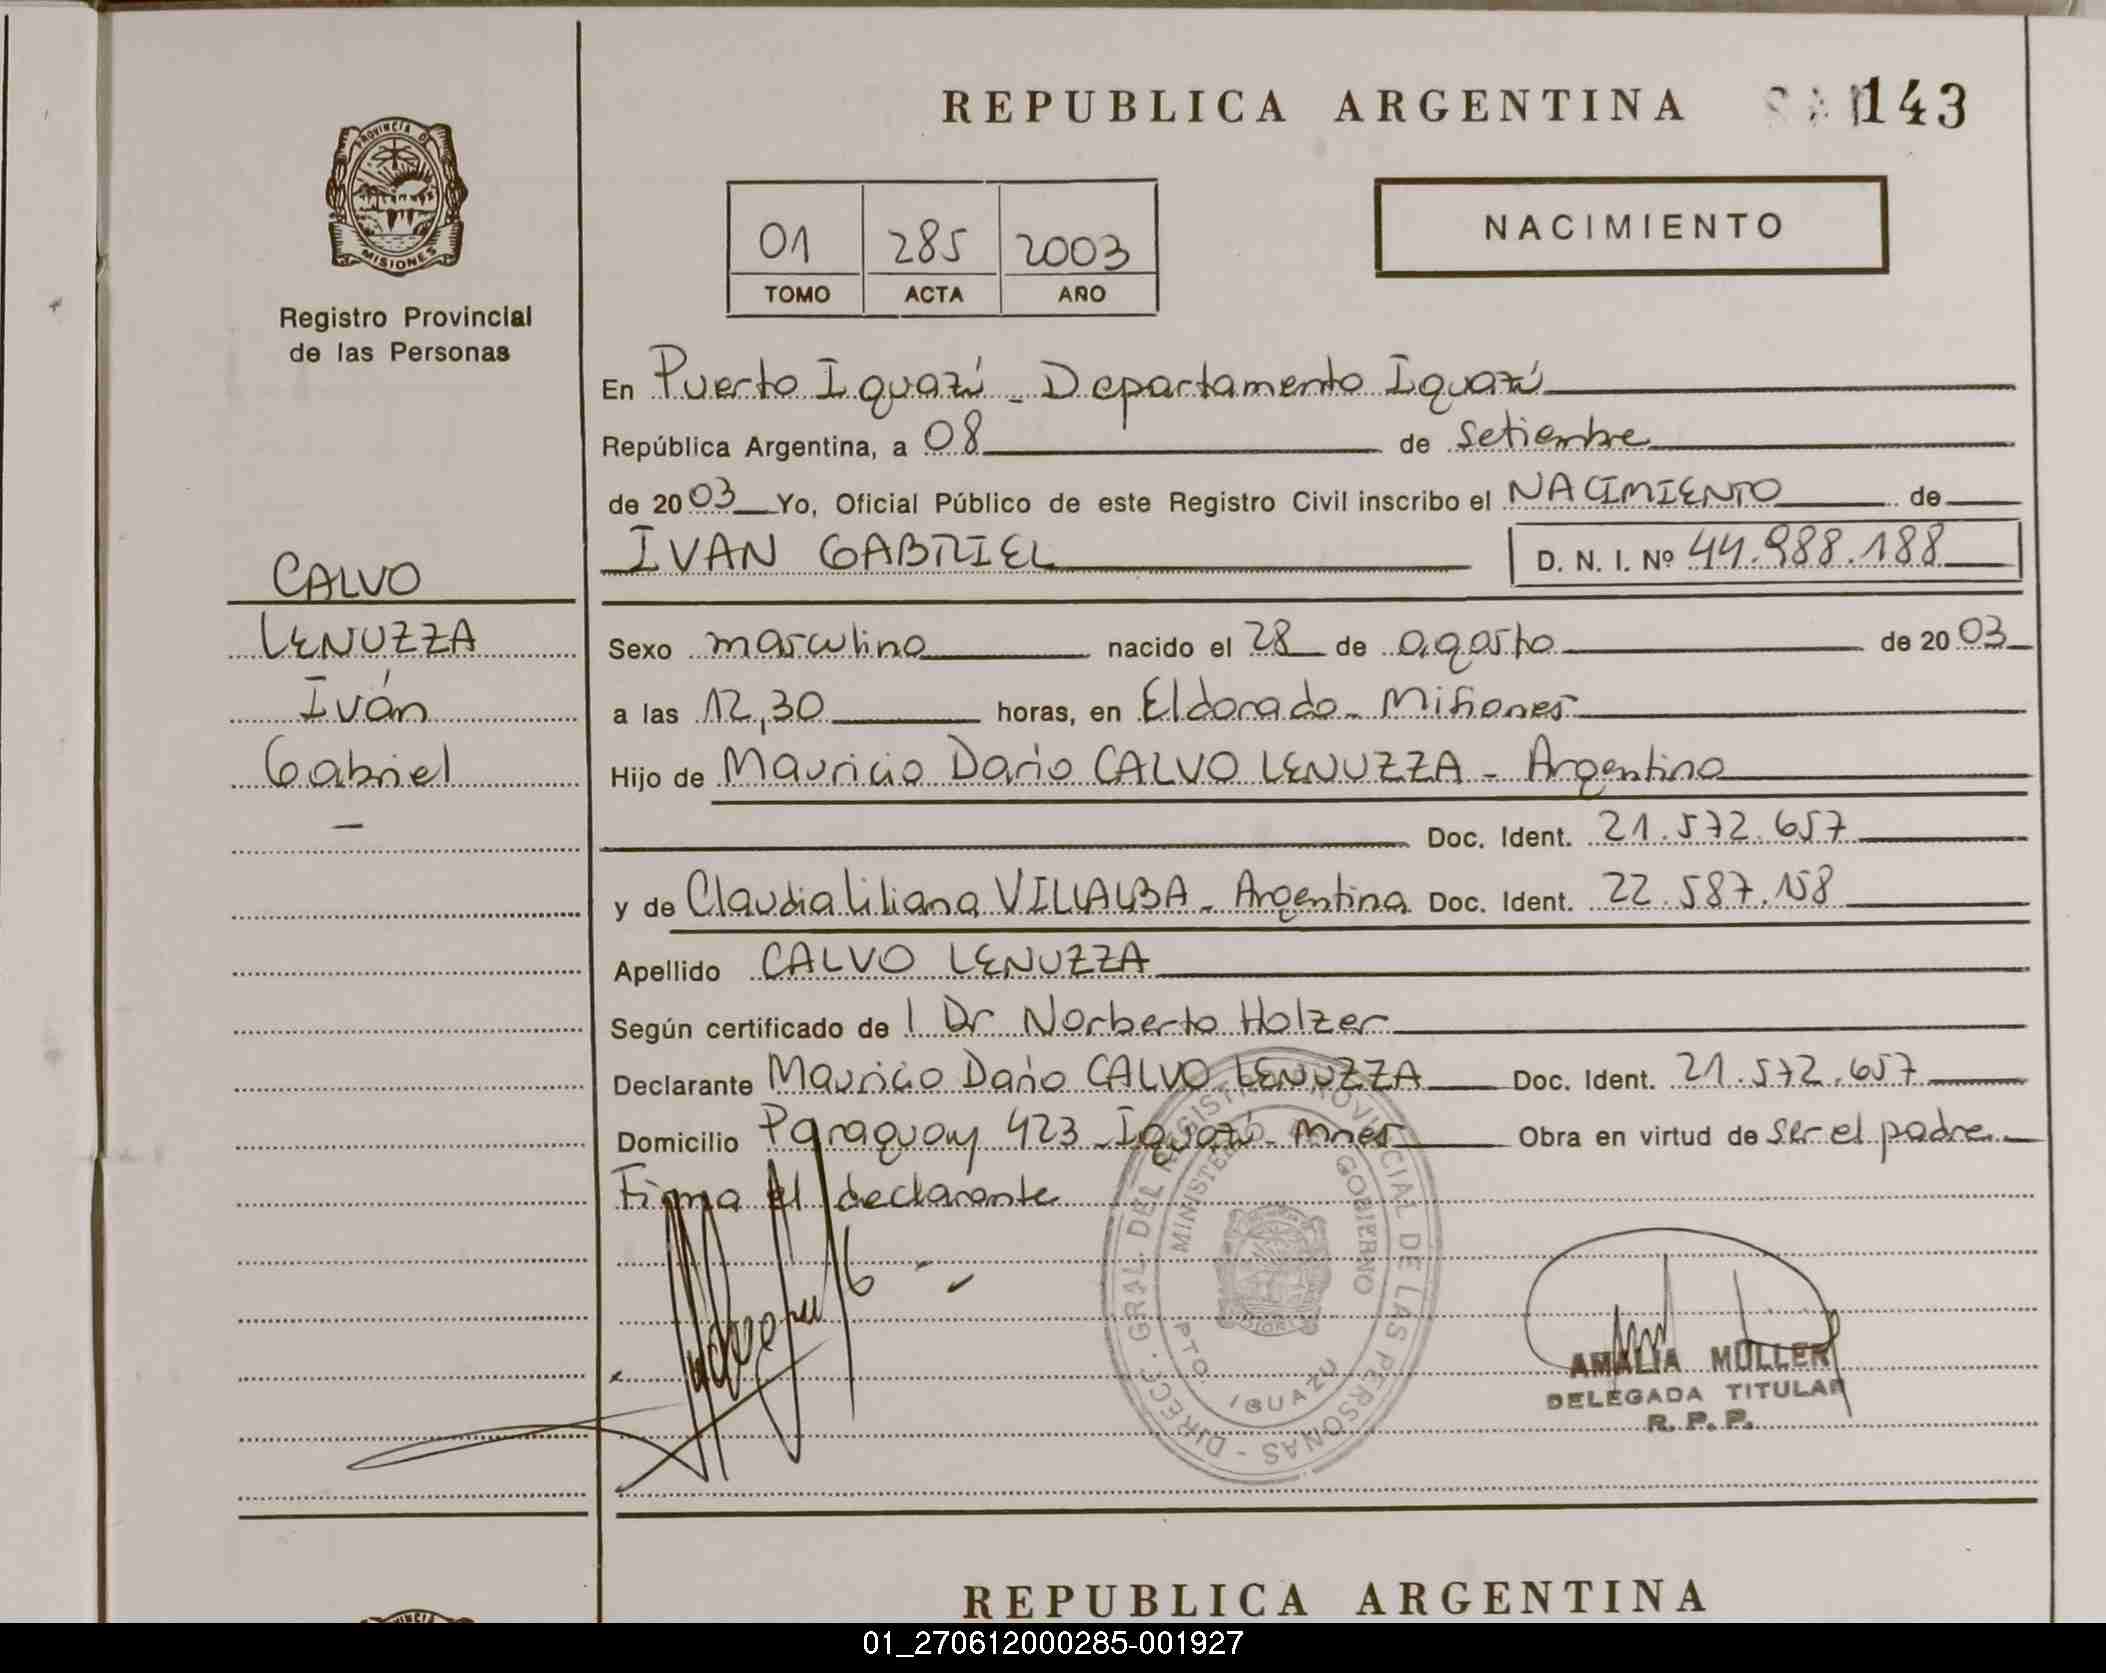 REPUBLICA ARGENTINA 143
PROVINCIA DE
MISIONES
Registro Provincial
de las Personas
NACIMIENTO
01 285 2003
TOMO ACTA AÑO
En Puerto Iguazú - Departamento Iguazú
República Argentina, a 08 de Setiembre
de 2003 Yo, Oficial Público de este Registro Civil inscribo el NACIMIENTO de
IVAN GABRIEL D. N. I. Nº 44.988.188
CALVO
LENUZZA
Iván
Gabriel
-
Sexo masculino nacido el 28 de agosto de 2003
a las 12,30 horas, en Eldorado - Misiones
Hijo de Mauricio Darío CALVO LENUZZA - Argentino
Doc. Ident. 21.572.657
y de Claudia Liliana VILLALBA - Argentina Doc. Ident. 22.587.158
Apellido CALVO LENUZZA
Según certificado de l Dr Norberto Holzer
Declarante Mauricio Darío CALVO LENUZZA Doc. Ident. 21.572.657
Domicilio Paraguay 423 - Iguazú - Mnes Obra en virtud de ser el padre
Firma el declarante
DIRECC. GRAL. DEL REGISTRO PROVINCIAL DE LAS PERSONAS -
MINISTERIO GOBIERNO
PTO IGUAZU
AMALIA MÜLLER
DELEGADA TITULAR
R. P. P.
REPUBLICA ARGENTINA
01_270612000285-001927